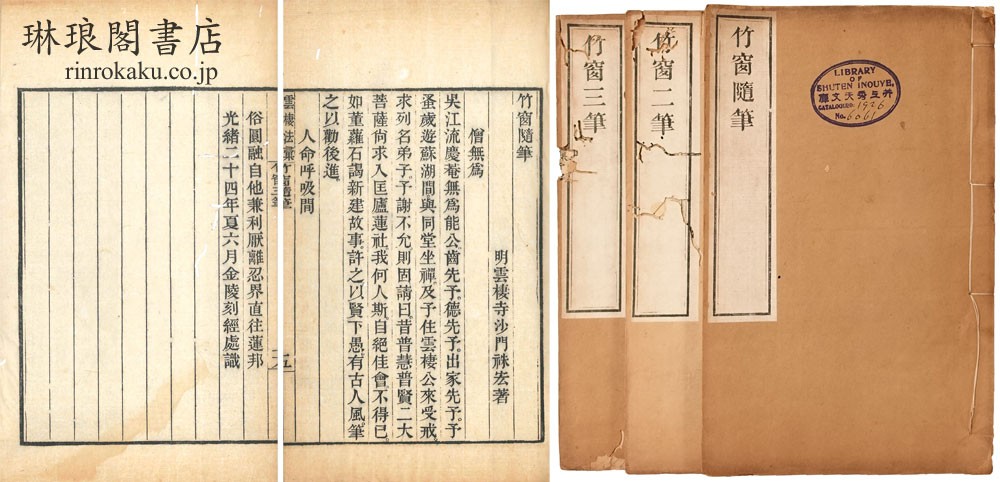 琳琅閣書店
rinrokaku.co.jp
竹窗隨筆
明雲棲寺沙門袾宏著
僧無爲
吳江流慶菴無爲能公齒先予德先予出家先予予
蚤歲遊蘇湖間與同堂坐禪及予住雲棲公來受戒
求列名弟子予謝不允則固請曰昔普慧普賢二大
菩薩尚求入匡廬蓮社我何人斯自絕佳會不得已
如董蘿石謁新建故事許之以賢下愚有古人風筆
之以勸後進
人命呼吸間
俗圓融自他兼利厭離忍界直往蓮邦
光緒二十四年夏六月金陵刻經處識
竹窗隨筆
竹窗二筆
竹窗三筆
LIBRARY
OF
SHUTEN INOUYE,
庫文天秀上井
CATALOGUED. 1926
No. 6061